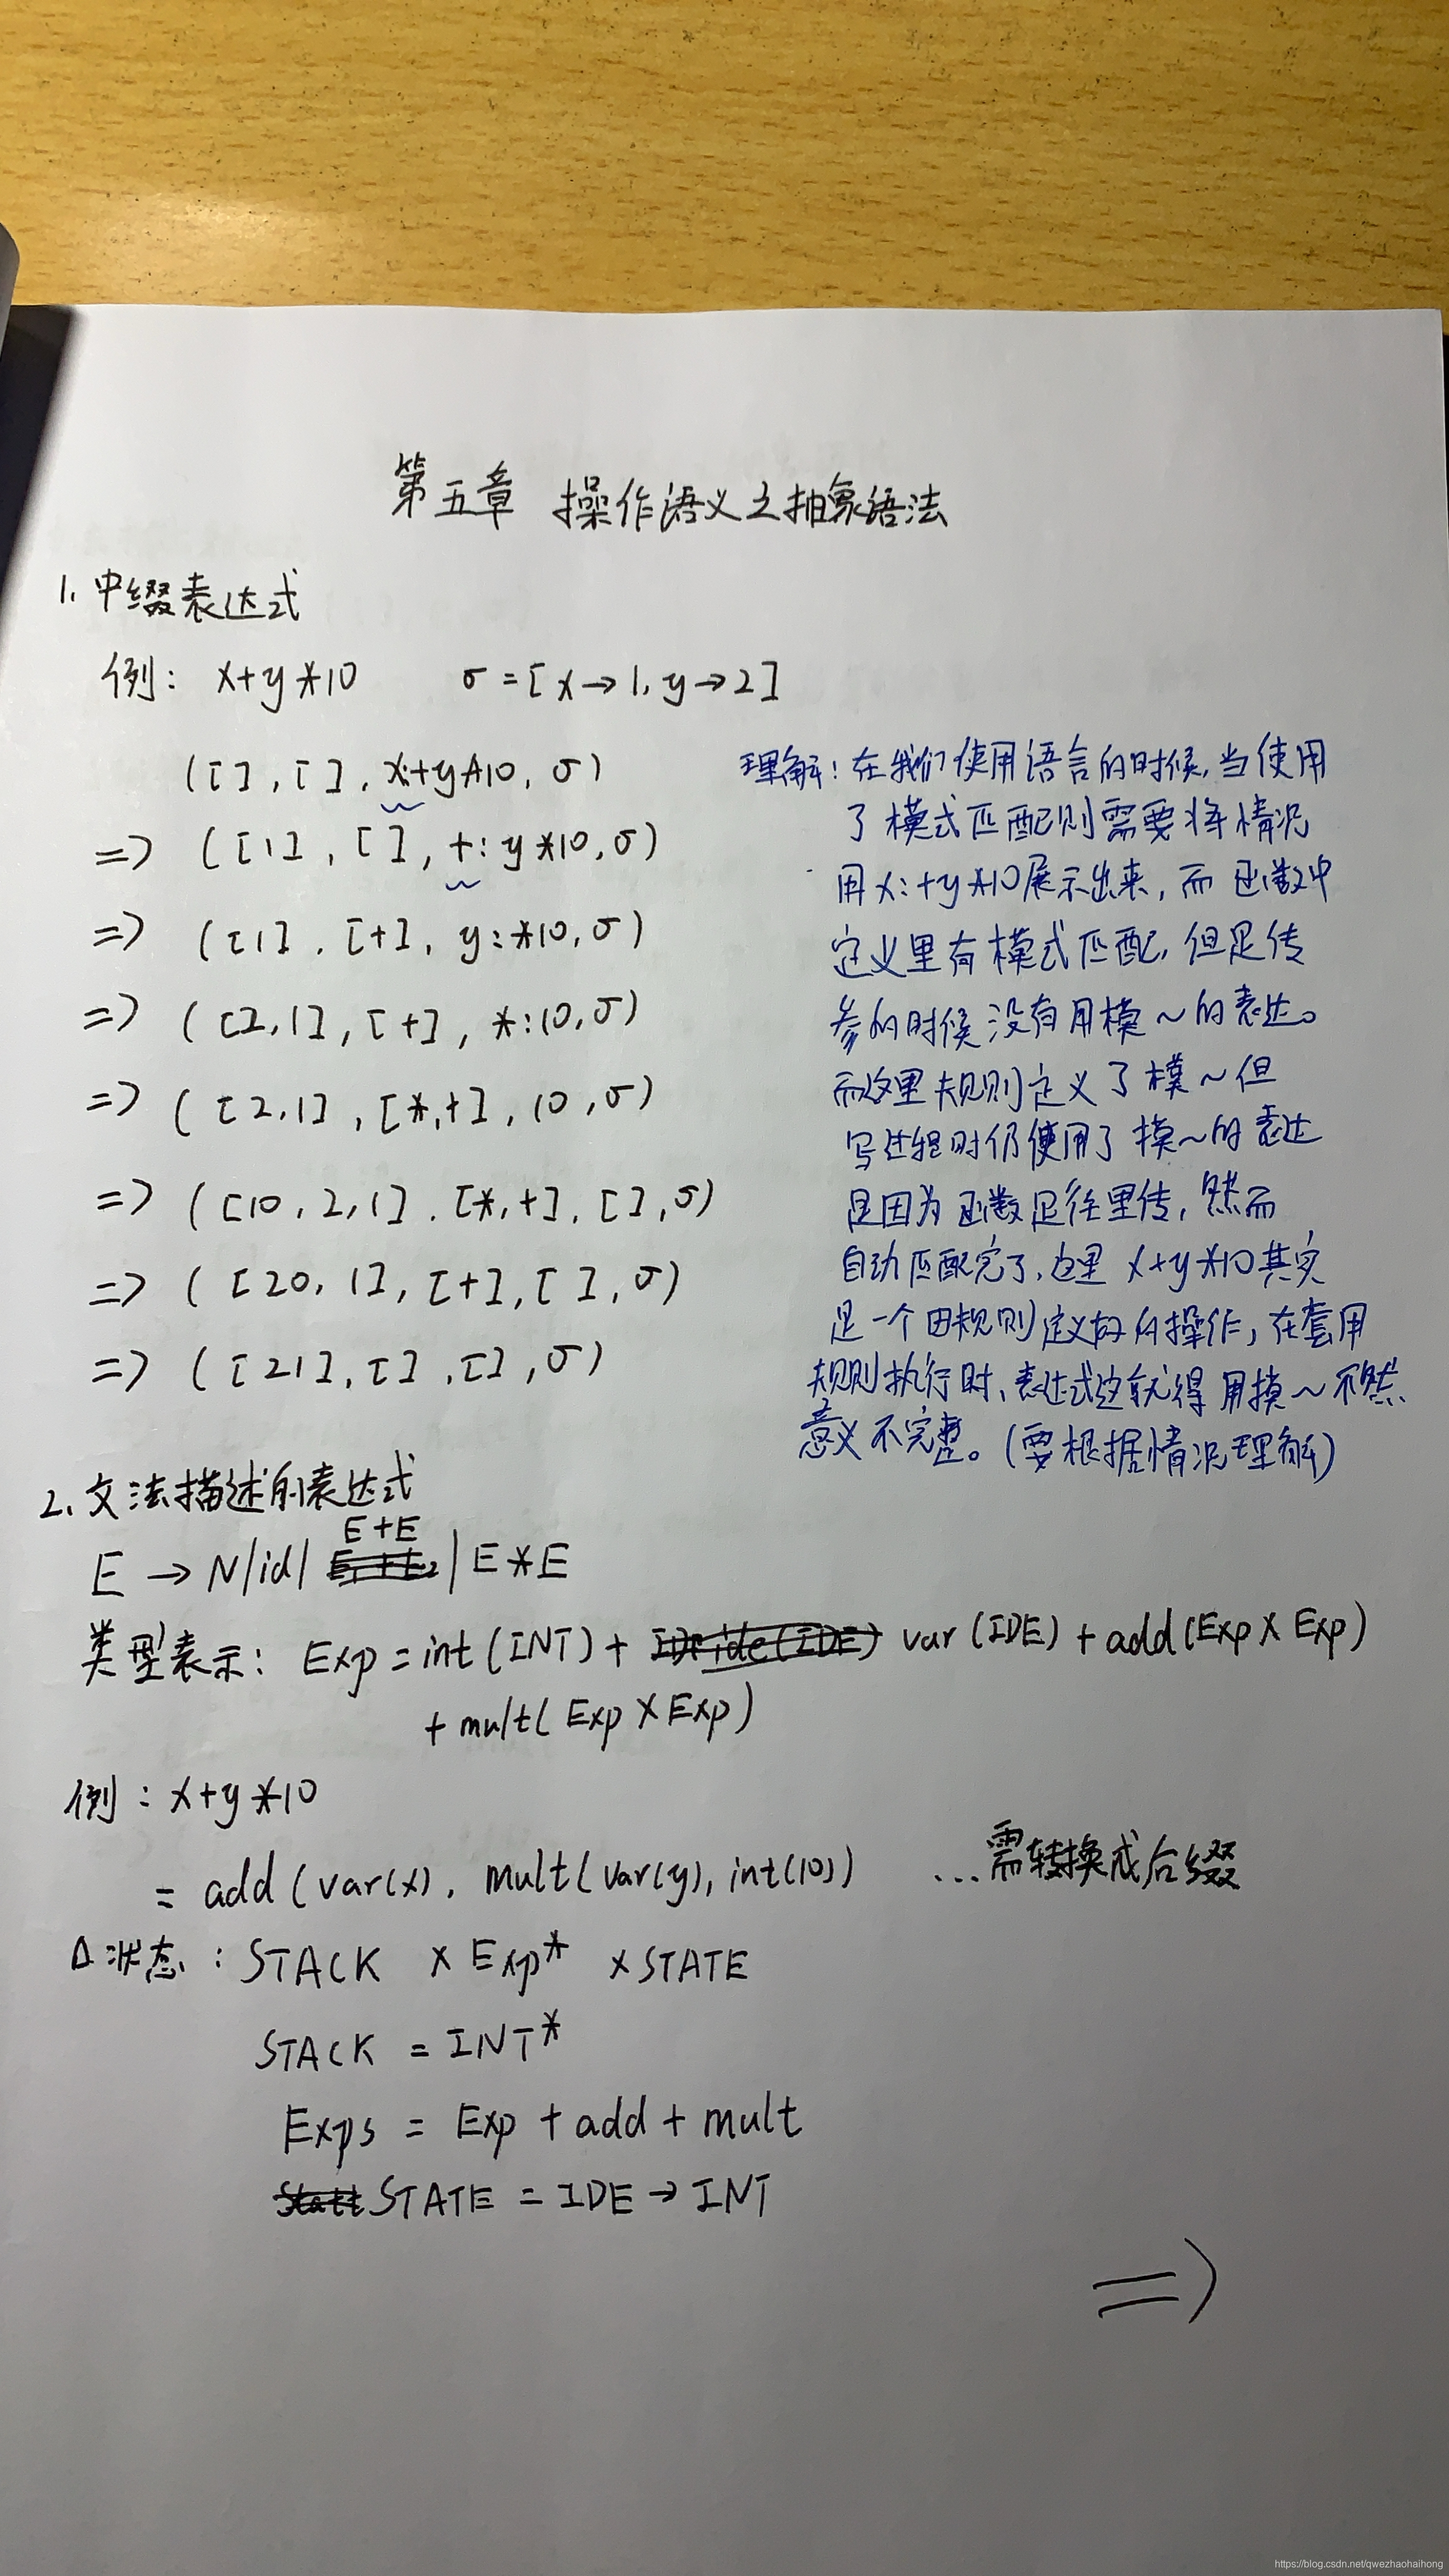 第五章 操作语义之抽象语法
1. 中缀表达式
例: x+y*10 σ=[x→1, y→2]
([], [], x:+y*10, σ)
=> ([1], [], +:y*10, σ)
=> ([1], [+], y:*10, σ)
=> ([2,1], [+], *:10, σ)
=> ([2,1], [*,+], 10, σ)
=> ([10,2,1], [*,+], [], σ)
=> ([20,1], [+], [], σ)
=> ([21], [], [], σ)
理解: 在我们使用语言的时候, 当使用
了模式匹配则需要将情况
用x:+y*10展示出来, 而函数中
定义里有模式匹配, 但是传
参的时候没有用模~的表达。
而这里规则定义了模~但
写过程时仍使用了模~的表达
是因为函数是往里传, 然而
自动匹配完了, 这里x+y*10其实
是一个由规则定义好的操作, 在套用
规则执行时、表达式这就得用模~不然
意义不完整。(要根据情况理解)
2. 文法描述的表达式
E+E
E → N|id| | E*E
类型表示: Exp = int(INT) + var(IDE) + add(Exp×Exp)
+ mult(Exp×Exp)
例: x+y*10
= add(var(x), mult(var(y), int(10)) ...需转换成后缀
△状态: STACK × Exp* × STATE
STACK = INT*
Exps = Exp + add + mult
STATE = IDE → INT
=>
https://blog.csdn.net/qwezhaohaihong